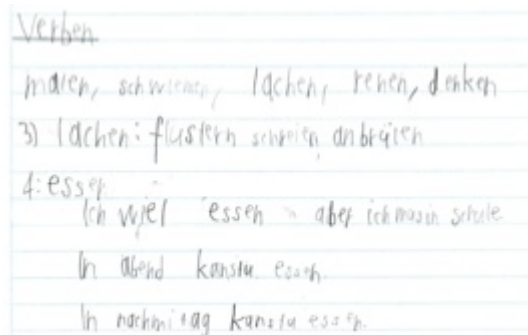 Verben
malen, schwimen, lachen, renen, denken
3) lachen: flüstern schreien, anbrülen
4: essen
Ich wiel essen aber ich mus in schule
In abend kanstu essen.
In nachmitag kanstu essen.